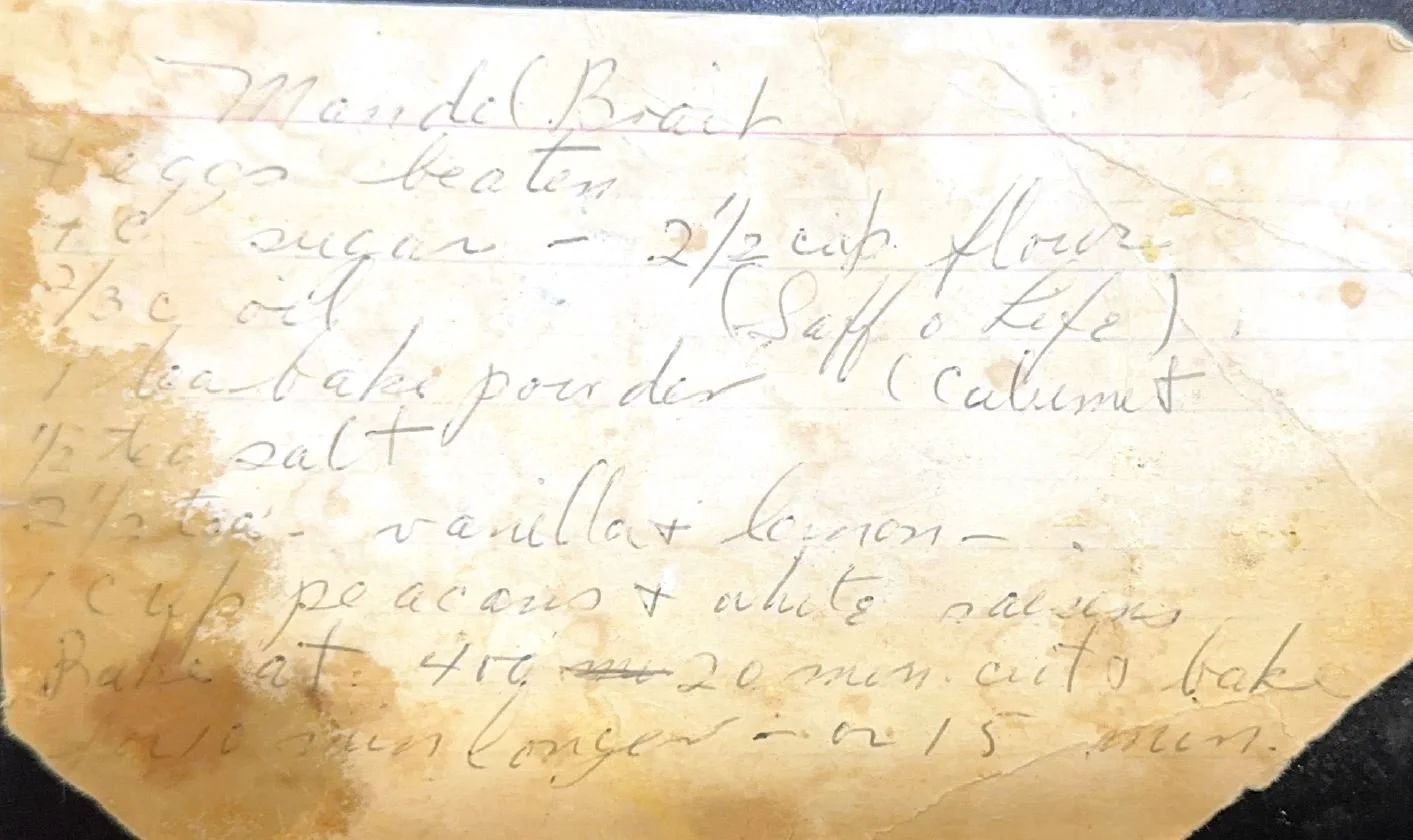 Mandel Brait
4 eggs beaten
1 c sugar - 2 1/2 cup flour
2/3 c oil (Saff o Life)
1 tea bake powder (Calumet
1/2 tea salt
2 1/2 tea - vanilla + lemon -
1 cup peacans + white raisins
Bake at 20 min. cut & bake
for 10 min longer - or 15 min.